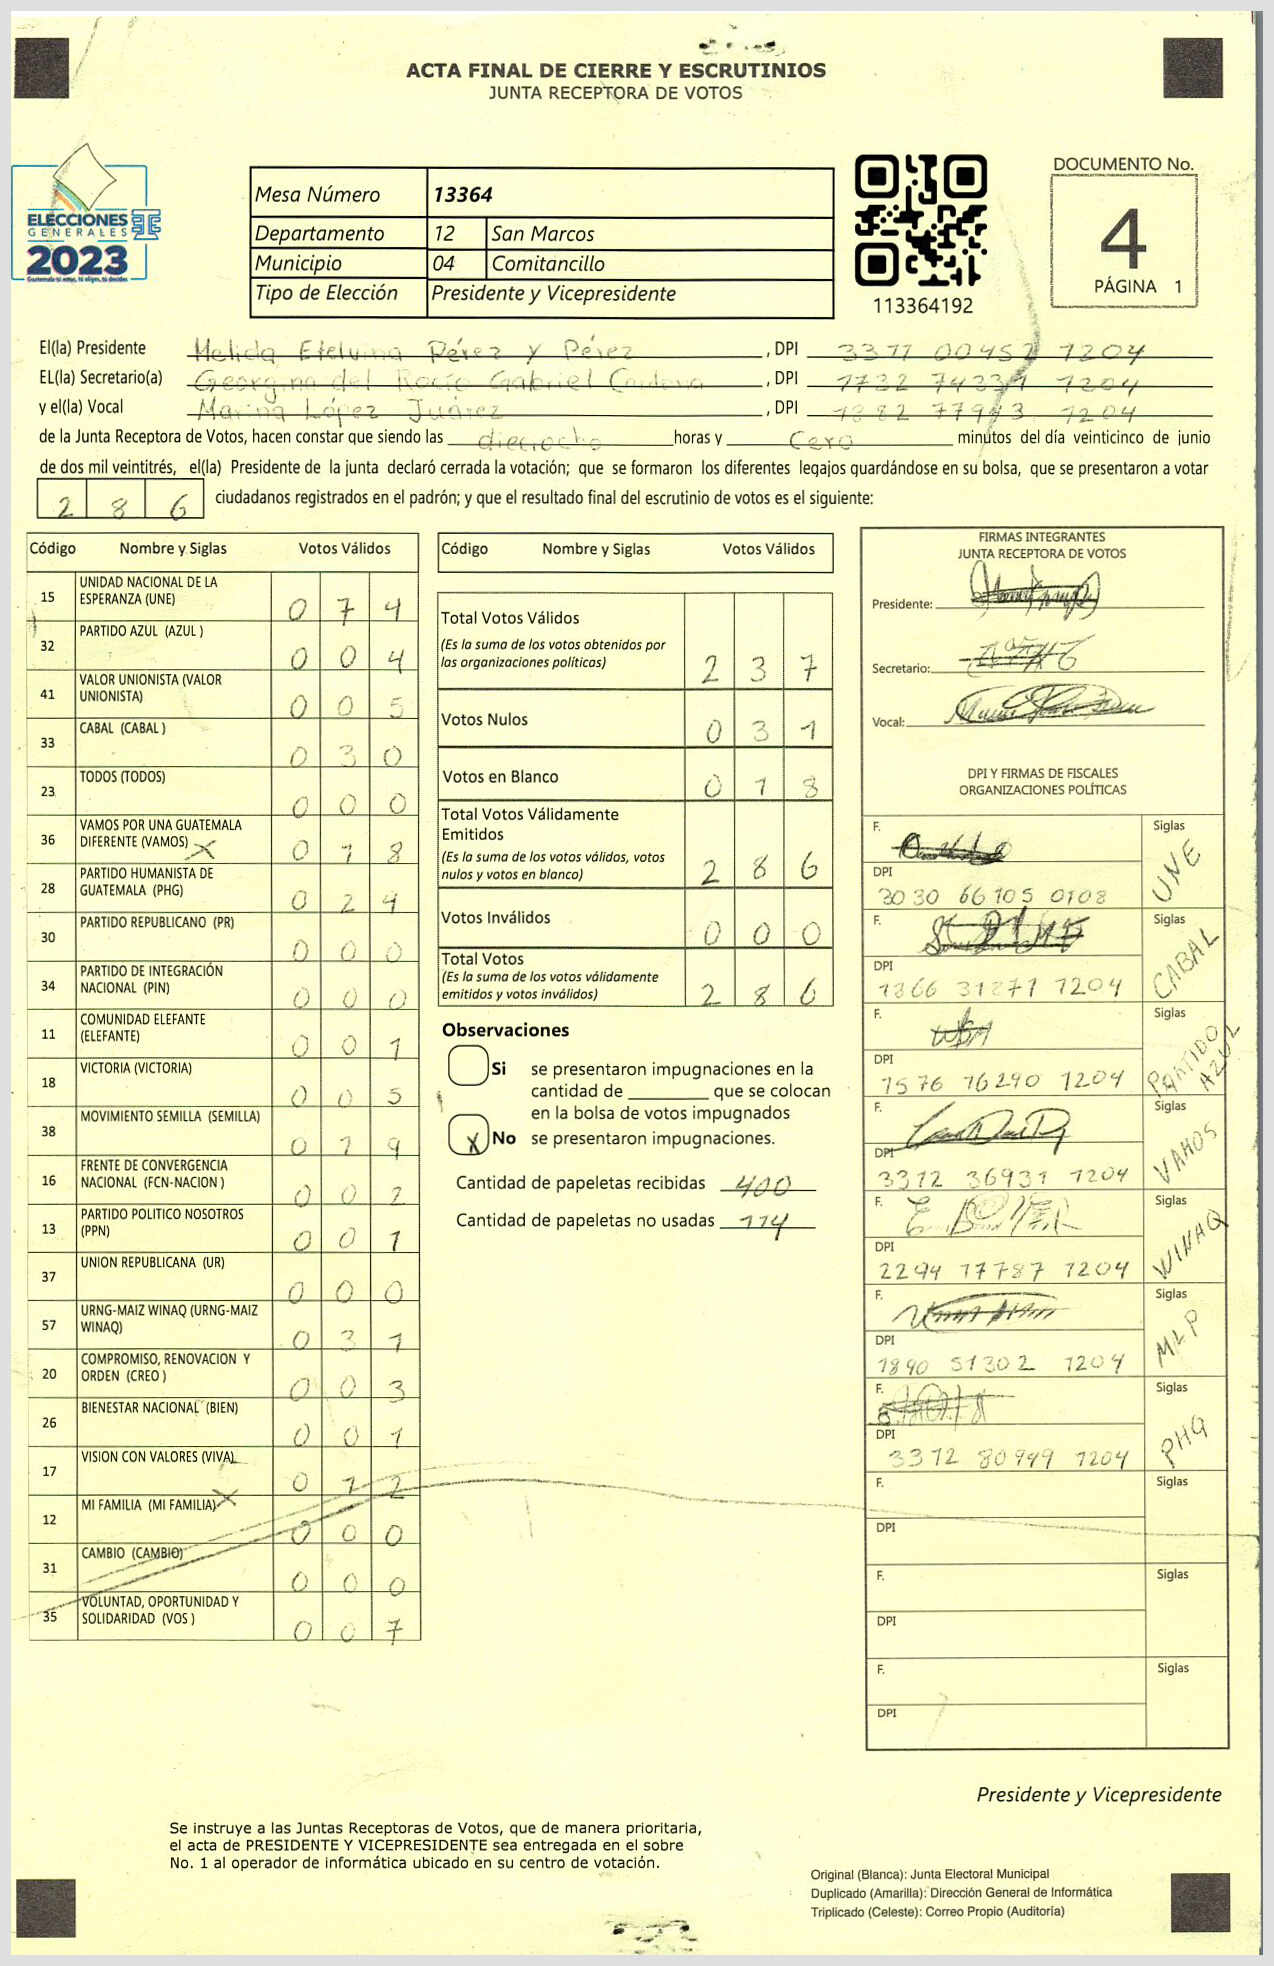 ACTA FINAL DE CIERRE Y ESCRUTINIOS
JUNTA RECEPTORA DE VOTOS
ELECCIONES
GENERALES
2023
Mesa Número 13364
Departamento 12 San Marcos
Municipio 04 Comitancillo
Tipo de Elección Presidente y Vicepresidente
113364192
DOCUMENTO No.
4
PÁGINA 1
El(la) Presidente Melida Etelvina Pérez y Pérez , DPI 3311 00452 1204
EL(la) Secretario(a) Georgina del Rocío Gabriel , DPI 1732 74331 1204
y el(la) Vocal Marina López Juárez , DPI 1204
de la Junta Receptora de Votos, hacen constar que siendo las dieciocho horas y Cero minutos del día veinticinco de junio
de dos mil veintitrés, el(la) Presidente de la junta declaró cerrada la votación; que se formaron los diferentes legajos guardándose en su bolsa, que se presentaron a votar
2 8 6 ciudadanos registrados en el padrón; y que el resultado final del escrutinio de votos es el siguiente:
Código Nombre y Siglas Votos Válidos
15 UNIDAD NACIONAL DE LA
ESPERANZA (UNE) 0 7 4
32 PARTIDO AZUL (AZUL ) 0 0 4
41 VALOR UNIONISTA (VALOR
UNIONISTA) 0 0 5
33 CABAL (CABAL ) 0 3 0
23 TODOS (TODOS) 0 0 0
36 VAMOS POR UNA GUATEMALA
DIFERENTE (VAMOS) X 0 1 8
28 PARTIDO HUMANISTA DE
GUATEMALA (PHG) 0 2 4
30 PARTIDO REPUBLICANO (PR) 0 0 0
34 PARTIDO DE INTEGRACIÓN
NACIONAL (PIN) 0 0 0
11 COMUNIDAD ELEFANTE
(ELEFANTE) 0 0 1
18 VICTORIA (VICTORIA) 0 0 5
38 MOVIMIENTO SEMILLA (SEMILLA) 0 1 9
16 FRENTE DE CONVERGENCIA
NACIONAL (FCN-NACION ) 0 0 2
13 PARTIDO POLITICO NOSOTROS
(PPN) 0 0 1
37 UNION REPUBLICANA (UR) 0 0 0
57 URNG-MAIZ WINAQ (URNG-MAIZ
WINAQ) 0 3 1
20 COMPROMISO, RENOVACION Y
ORDEN (CREO ) 0 0 3
26 BIENESTAR NACIONAL (BIEN) 0 0 1
17 VISION CON VALORES (VIVA) 0 1 2
12 MI FAMILIA (MI FAMILIA) X 0 0 0
31 CAMBIO (CAMBIO) 0 0 0
35 VOLUNTAD, OPORTUNIDAD Y
SOLIDARIDAD (VOS ) 0 0 7
Código Nombre y Siglas Votos Válidos
Total Votos Válidos
(Es la suma de los votos obtenidos por
las organizaciones políticas) 2 3 7
Votos Nulos 0 3 1
Votos en Blanco 0 1 8
Total Votos Válidamente
Emitidos
(Es la suma de los votos válidos, votos
nulos y votos en blanco) 2 8 6
Votos Inválidos 0 0 0
Total Votos
(Es la suma de los votos válidamente
emitidos y votos inválidos) 2 8 6
Observaciones
Si se presentaron impugnaciones en la
cantidad de ________ que se colocan
en la bolsa de votos impugnados
X No se presentaron impugnaciones.
Cantidad de papeletas recibidas 400
Cantidad de papeletas no usadas 114
FIRMAS INTEGRANTES
JUNTA RECEPTORA DE VOTOS
Presidente:
Secretario:
Vocal:
DPI Y FIRMAS DE FISCALES
ORGANIZACIONES POLÍTICAS
F. Siglas
DPI UNE
3030 66105 0108
F. Siglas
DPI CABAL
1366 31271 1204
F. Siglas
DPI PARTIDO AZUL
1576 16290 1204
F. Siglas
DPI VAMOS
3312 36931 1204
F. Siglas
DPI WINAQ
2294 17787 1204
F. Siglas
DPI MLP
1890 51302 1204
F. Siglas
DPI PHG
3312 80949 1204
F. Siglas
DPI
F. Siglas
DPI
F. Siglas
DPI
Presidente y Vicepresidente
Se instruye a las Juntas Receptoras de Votos, que de manera prioritaria,
el acta de PRESIDENTE Y VICEPRESIDENTE sea entregada en el sobre
No. 1 al operador de informática ubicado en su centro de votación.
Original (Blanca): Junta Electoral Municipal
Duplicado (Amarilla): Dirección General de Informática
Triplicado (Celeste): Correo Propio (Auditoría)